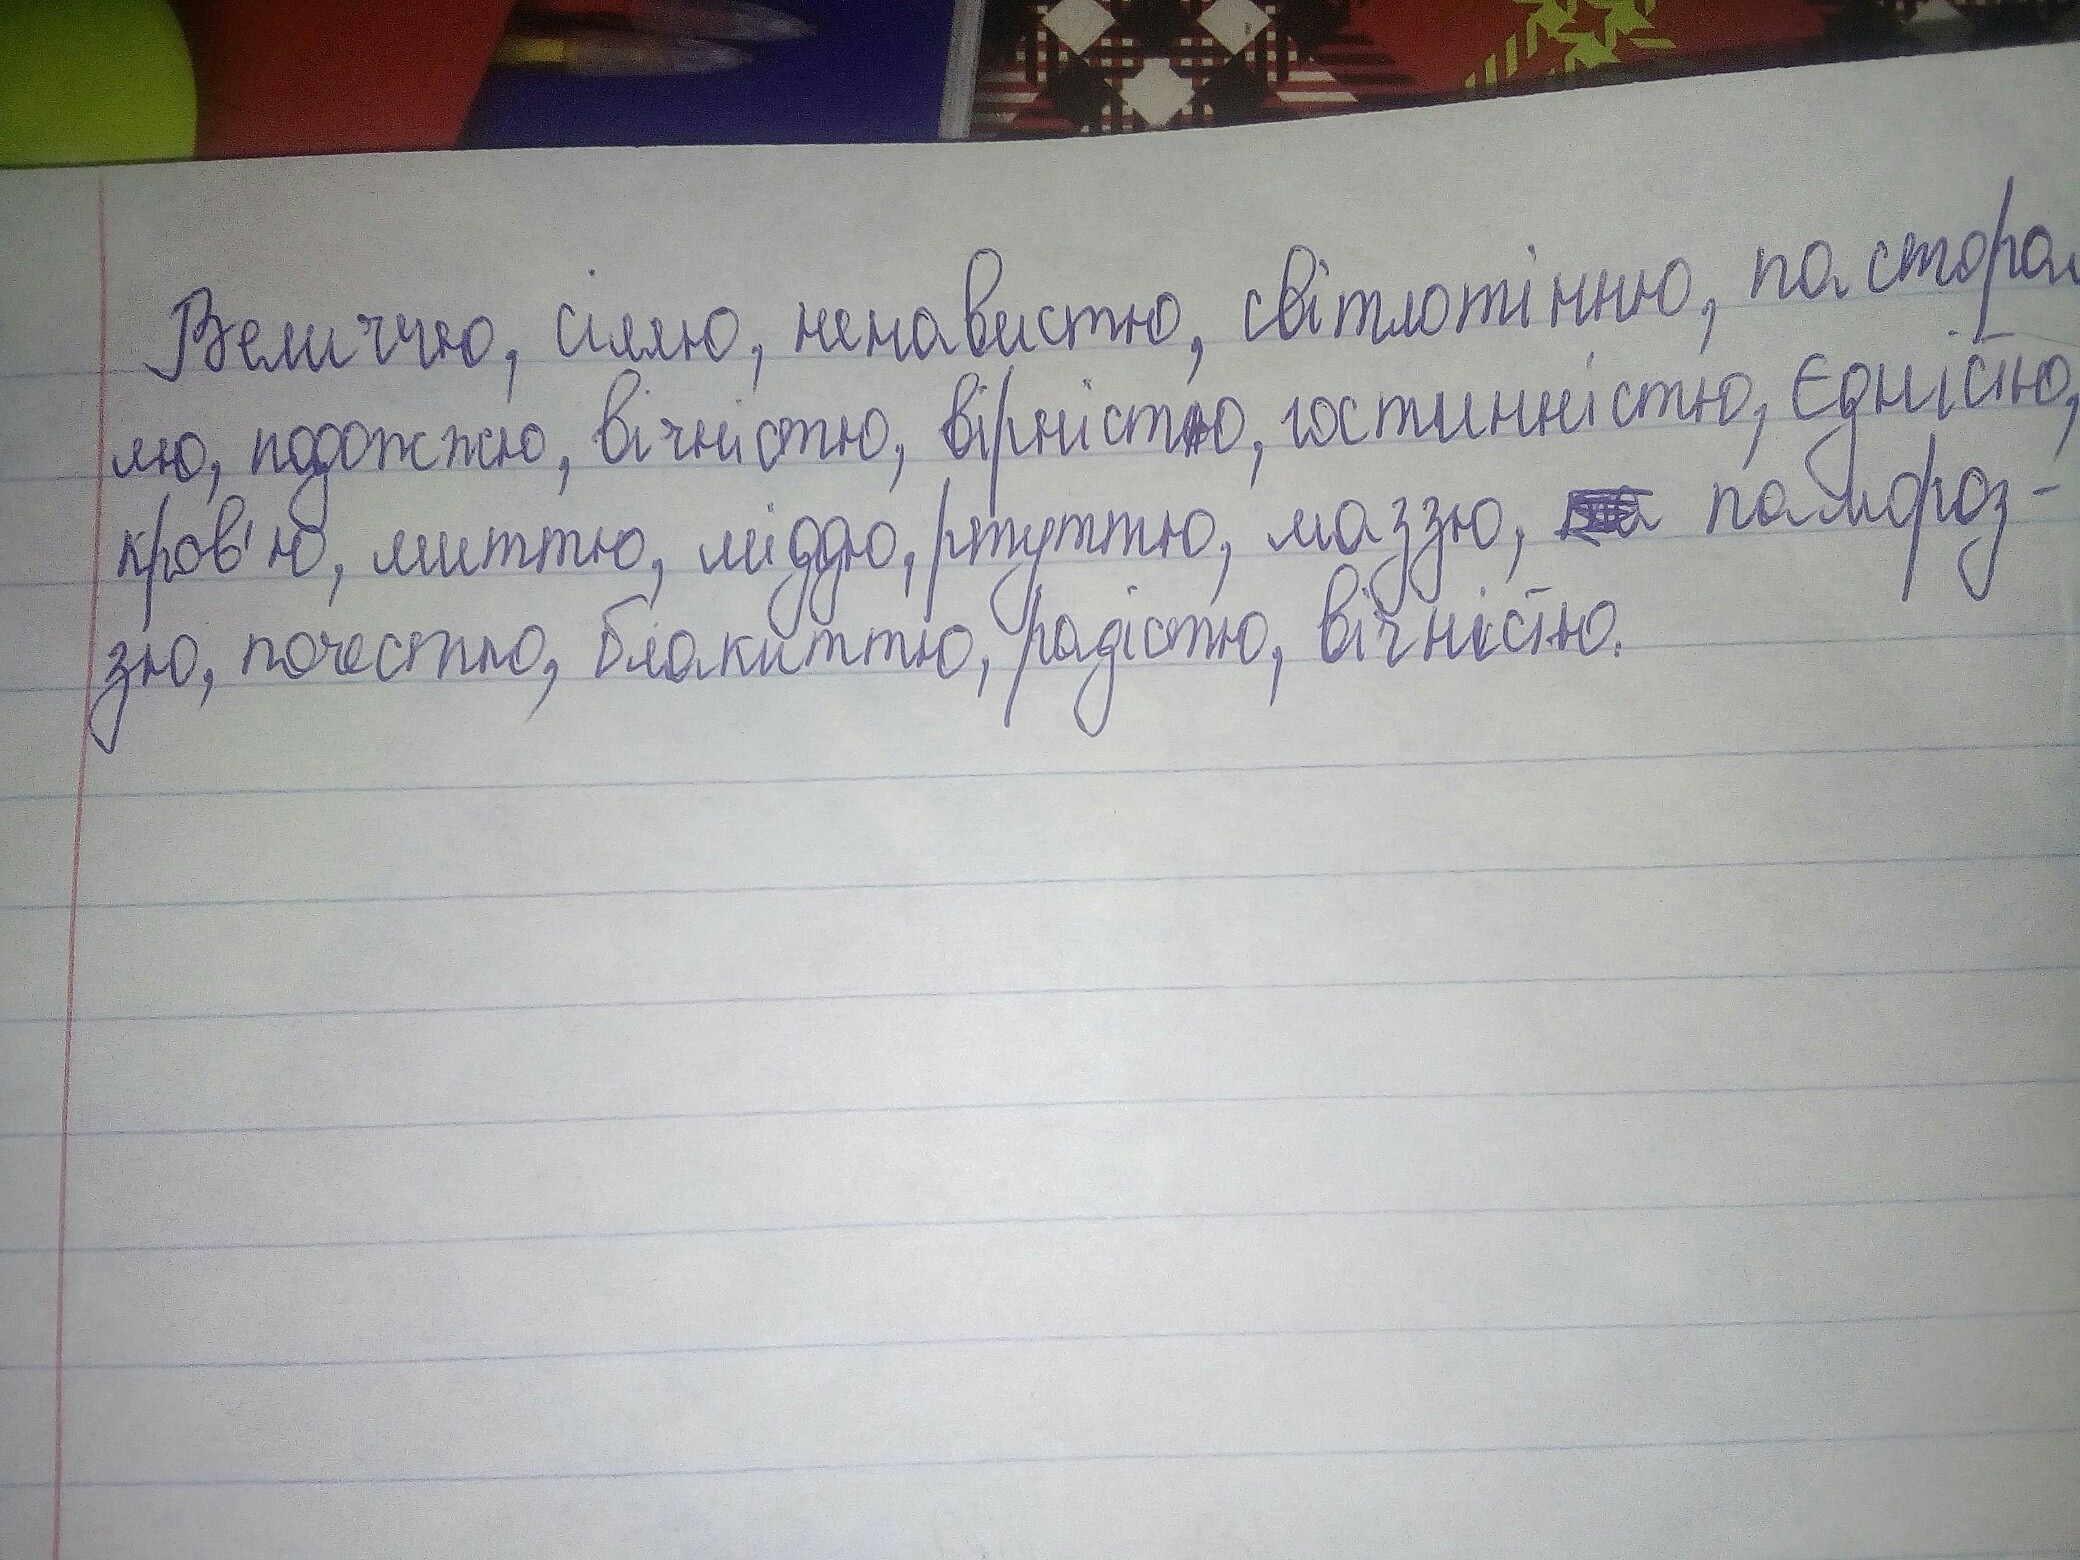 Величчю, сіллю, ненавистю, світлотінню, пастора
лю, подожжю, вічністю, вірністю, гостинністю, Єдністю,
кров'ю, миттю, міддю, ртуттю, маззю, памороз-
зю, почестю, блакиттю, радістю, вічністю.